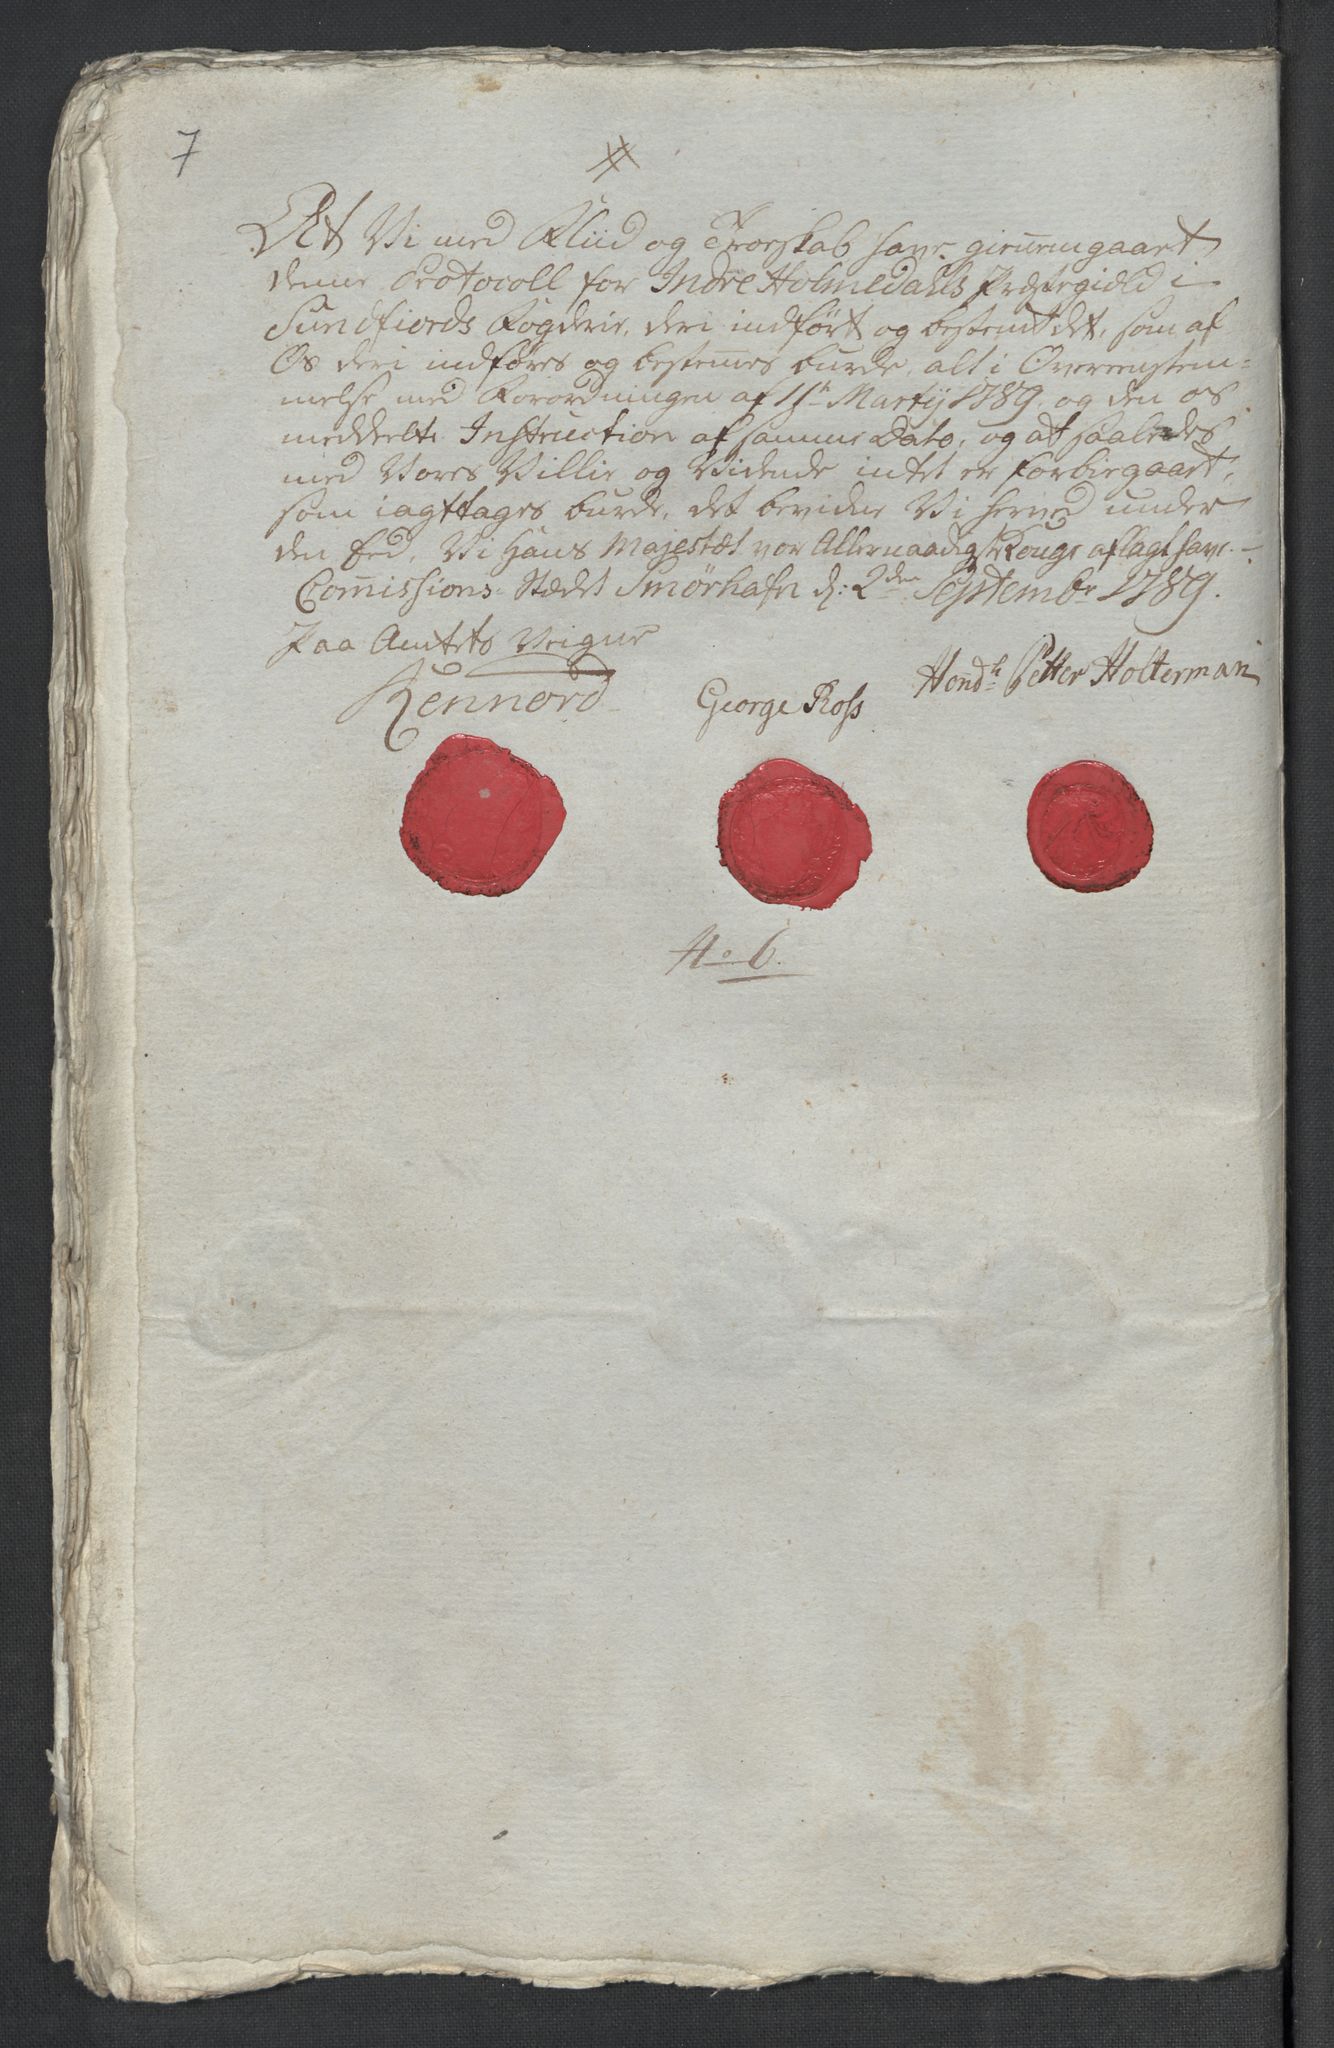 7
At Vi med Fliid og Troeskab have giennemgaaet
denne Protocoll for Indre Holmedahls Præstegield i
Sundfiords Fogderie, deri indført og bestemt det, som af
Os deri indføres og bestemmes burde, alt i Overeenstem=
melse med Forordningen af 11te Martij 1789. og den os
meddeelte Instruction af samme Dato, og at saaledes
med Vores Villie og Vidende intet er forbiegaaet,
som iagttages burde, det bevidne Vi herved under
den Eed, Vi Hans Majestæt vor Allernaadigste Konge aflagt have.
Commissions-Stædet Smørhafn d: 2den Septembr 1789.
Paa Amtets Veigne
Kennord
George Ross
Hend: Petter Holterman
No 6.